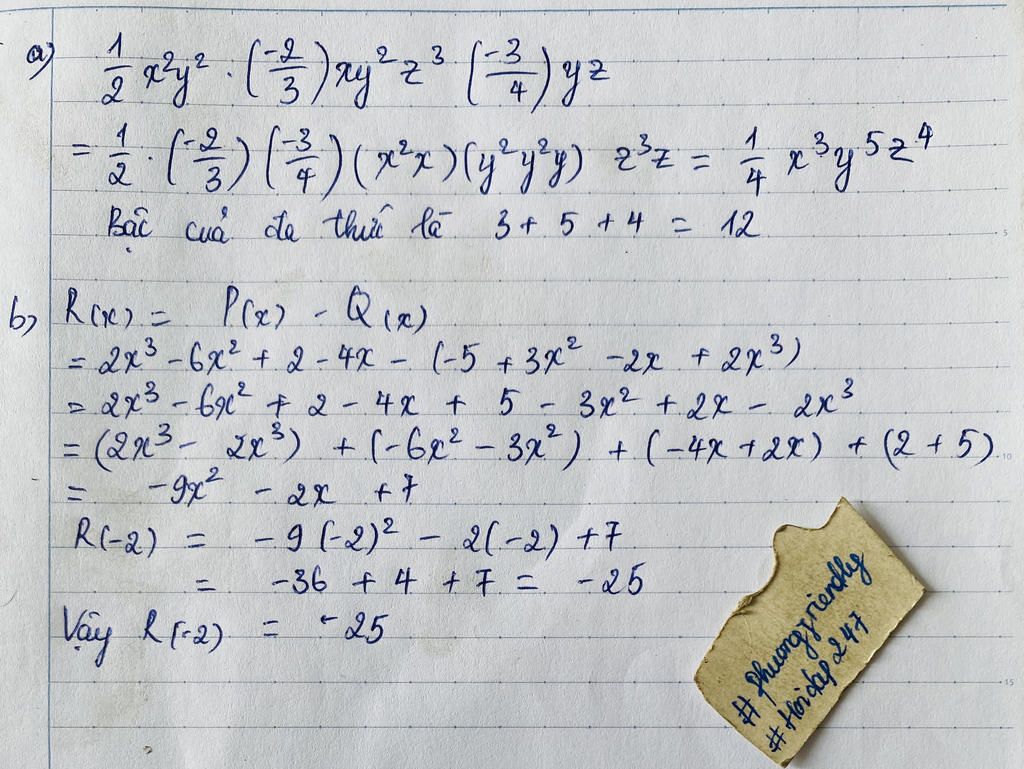 a) 1/2 x²y² . (-2/3) xy²z³ (-3/4) yz
= 1/2 . (-2/3) (-3/4) (x²x) (y²y²y) z³z = 1/4 x³y⁵z⁴
Bậc của đa thức là 3 + 5 + 4 = 12
b) R(x) = P(x) - Q(x)
= 2x³ - 6x² + 2 - 4x - (-5 + 3x² - 2x + 2x³)
= 2x³ - 6x² + 2 - 4x + 5 - 3x² + 2x - 2x³
= (2x³ - 2x³) + (-6x² - 3x²) + (-4x + 2x) + (2 + 5)
= -9x² - 2x + 7
R(-2) = -9(-2)² - 2(-2) + 7
= -36 + 4 + 7 = -25
Vậy R(-2) = -25
#phuongfriendly
#Hoidap247
5
10
15